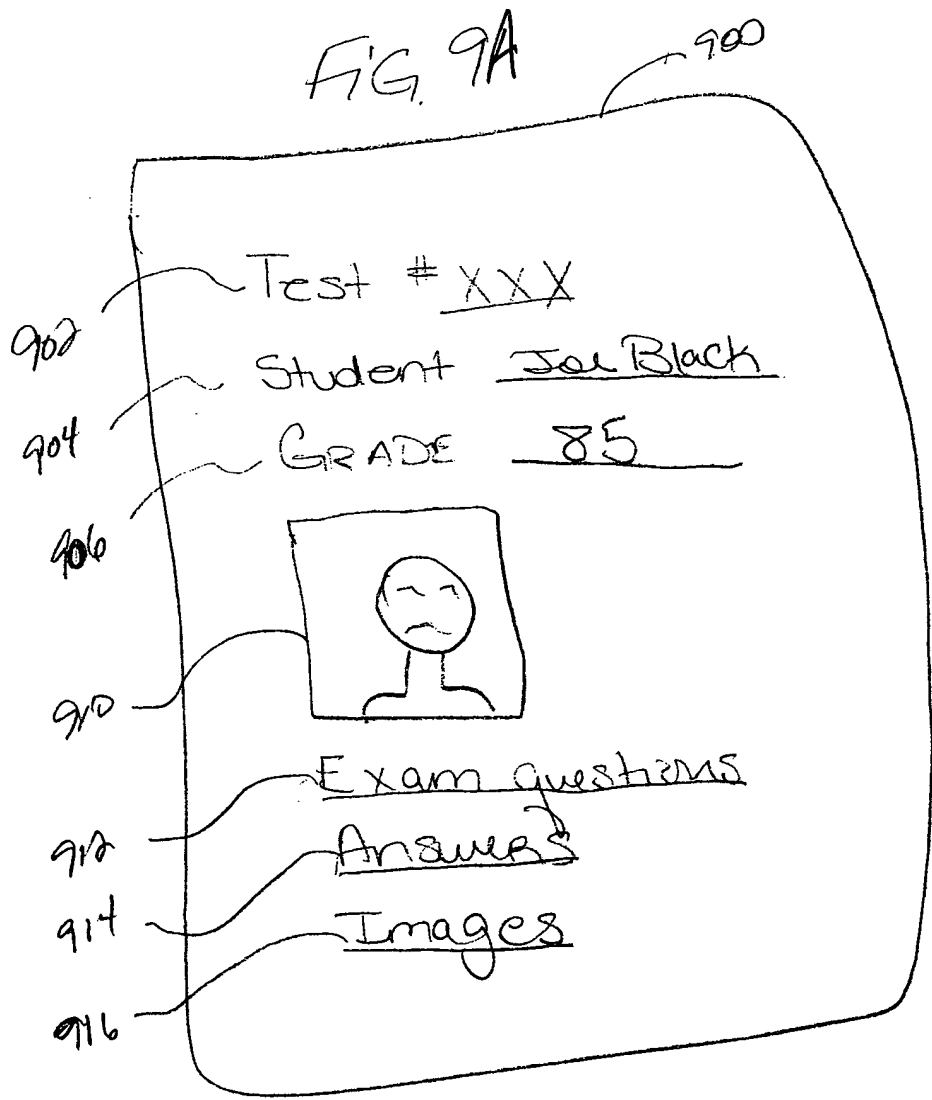 FIG. 9A
900
902 Test # XXX
904 Student Joe Black
906 GRADE 85
910
912 Exam questions
914 Answers
916 Images